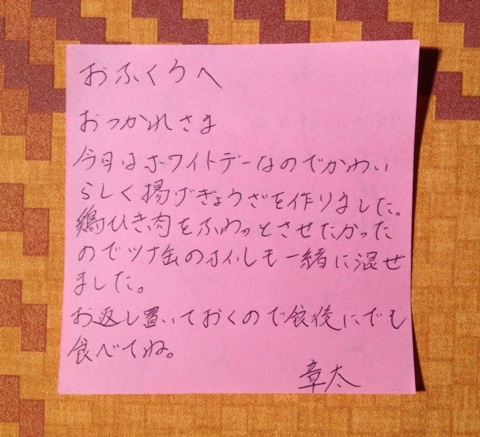 おふくろへ
おつかれさま
今日はホワイトデーなのでかわい
らしく揚げぎょうざを作りました。
鶏ひき肉をふわっとさせたかった
のでツナ缶のオイルも一緒に混ぜ
ました。
お返し置いておくので食後にでも
食べてね。
章太